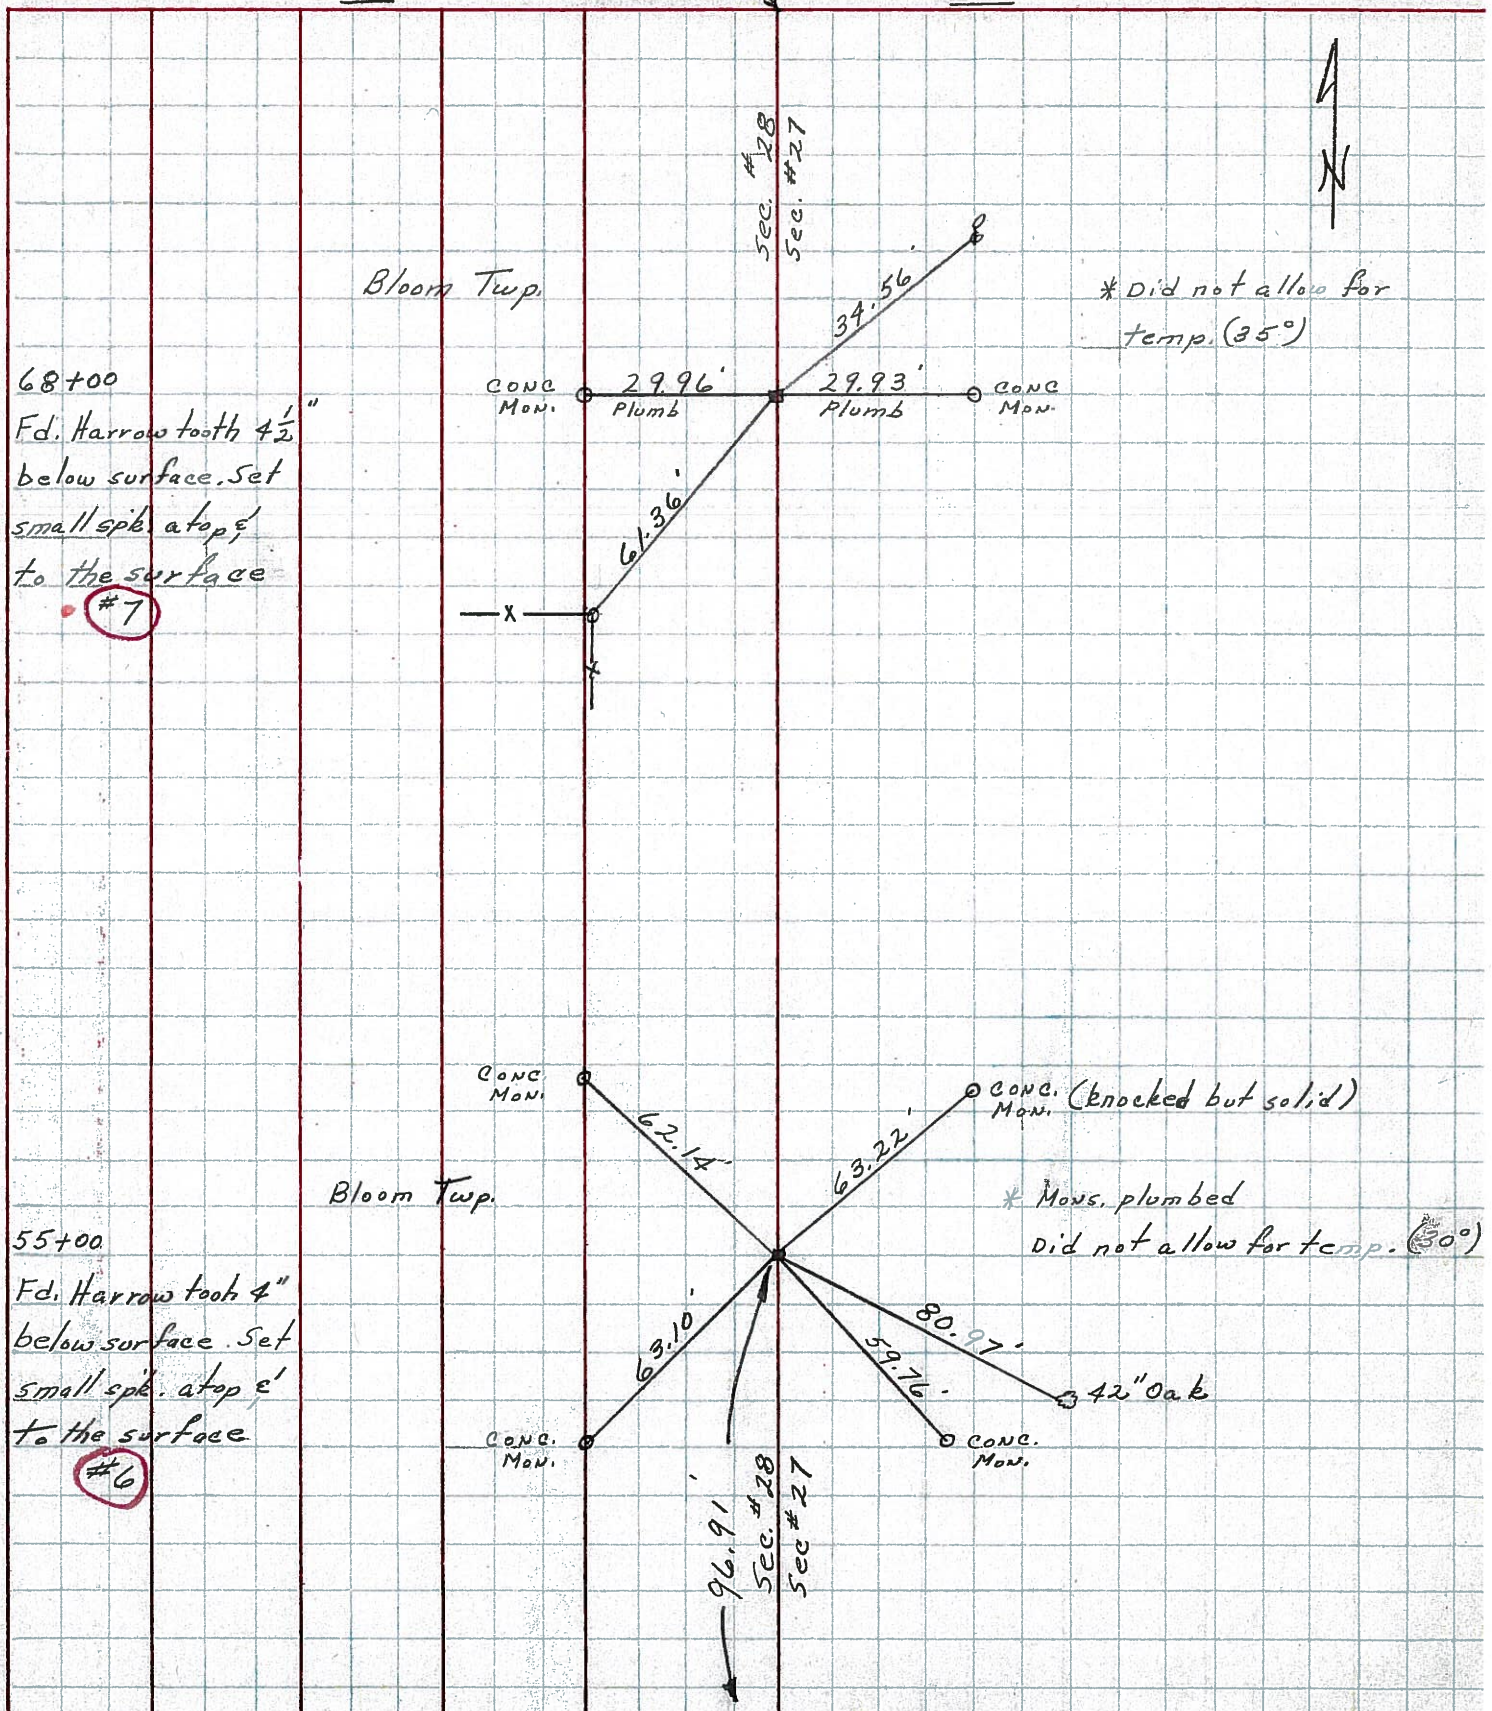 Sec. #28
Sec. #27
N
Bloom Twp.
34.56'
* Did not allow for
temp. (35°)
68+00
Fd. Harrow tooth 4½"
below surface. Set
small spk. atop &
to the surface
#7
CONC
MON.
29.96'
Plumb
29.93'
Plumb
CONC
MON.
61.36'
X
X
CONC
MON.
62.14'
63.22'
CONC.
MON.
(knocked but solid)
Bloom Twp.
* Mons. plumbed
Did not allow for temp. (30°)
55+00
Fd. Harrow tooh 4"
below surface. Set
small spk. atop &
to the surface
#6
63.10'
80.97'
59.76'
42" Oak
CONC.
MON.
CONC.
MON.
96.91'
Sec. #28
Sec #27